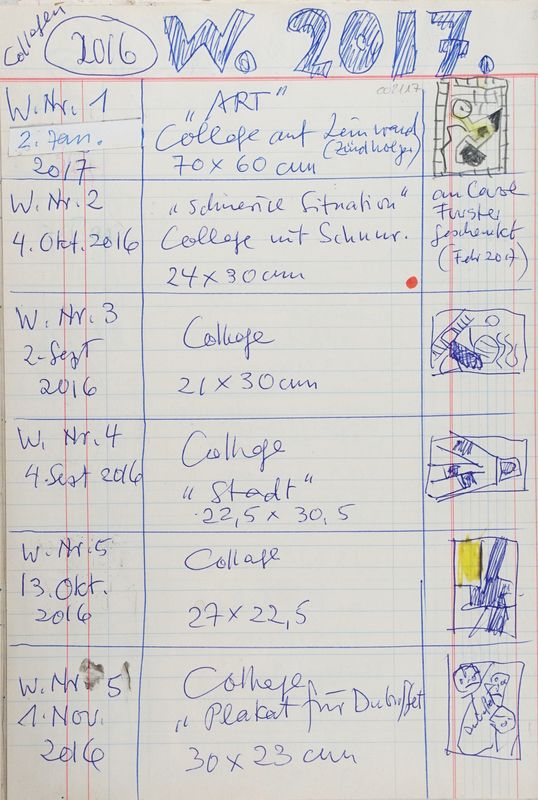 Collagen
2016
W. 2017.
W. Nr. 1
2. Jan.
2017
„ART"
Collage auf Leinwand
(Zündhölzer)
70 x 60 cm
W. Nr. 2
4. Okt. 2016
Situation"
Collage mit Schnur.
24 x 30 cm
geschenkt
(Febr 2017)
W. Nr. 3
2. Sept
2016
Collage
21 x 30 cm
W. Nr. 4
4. Sept 2016
Collage
„Stadt"
22,5 x 30,5
W. Nr. 5
13. Okt.
2016
Collage
27 x 22,5
W. Nr. 5
1. Nov.
2016
Collage
„Plakat für Dubuffet
30 x 23 cm